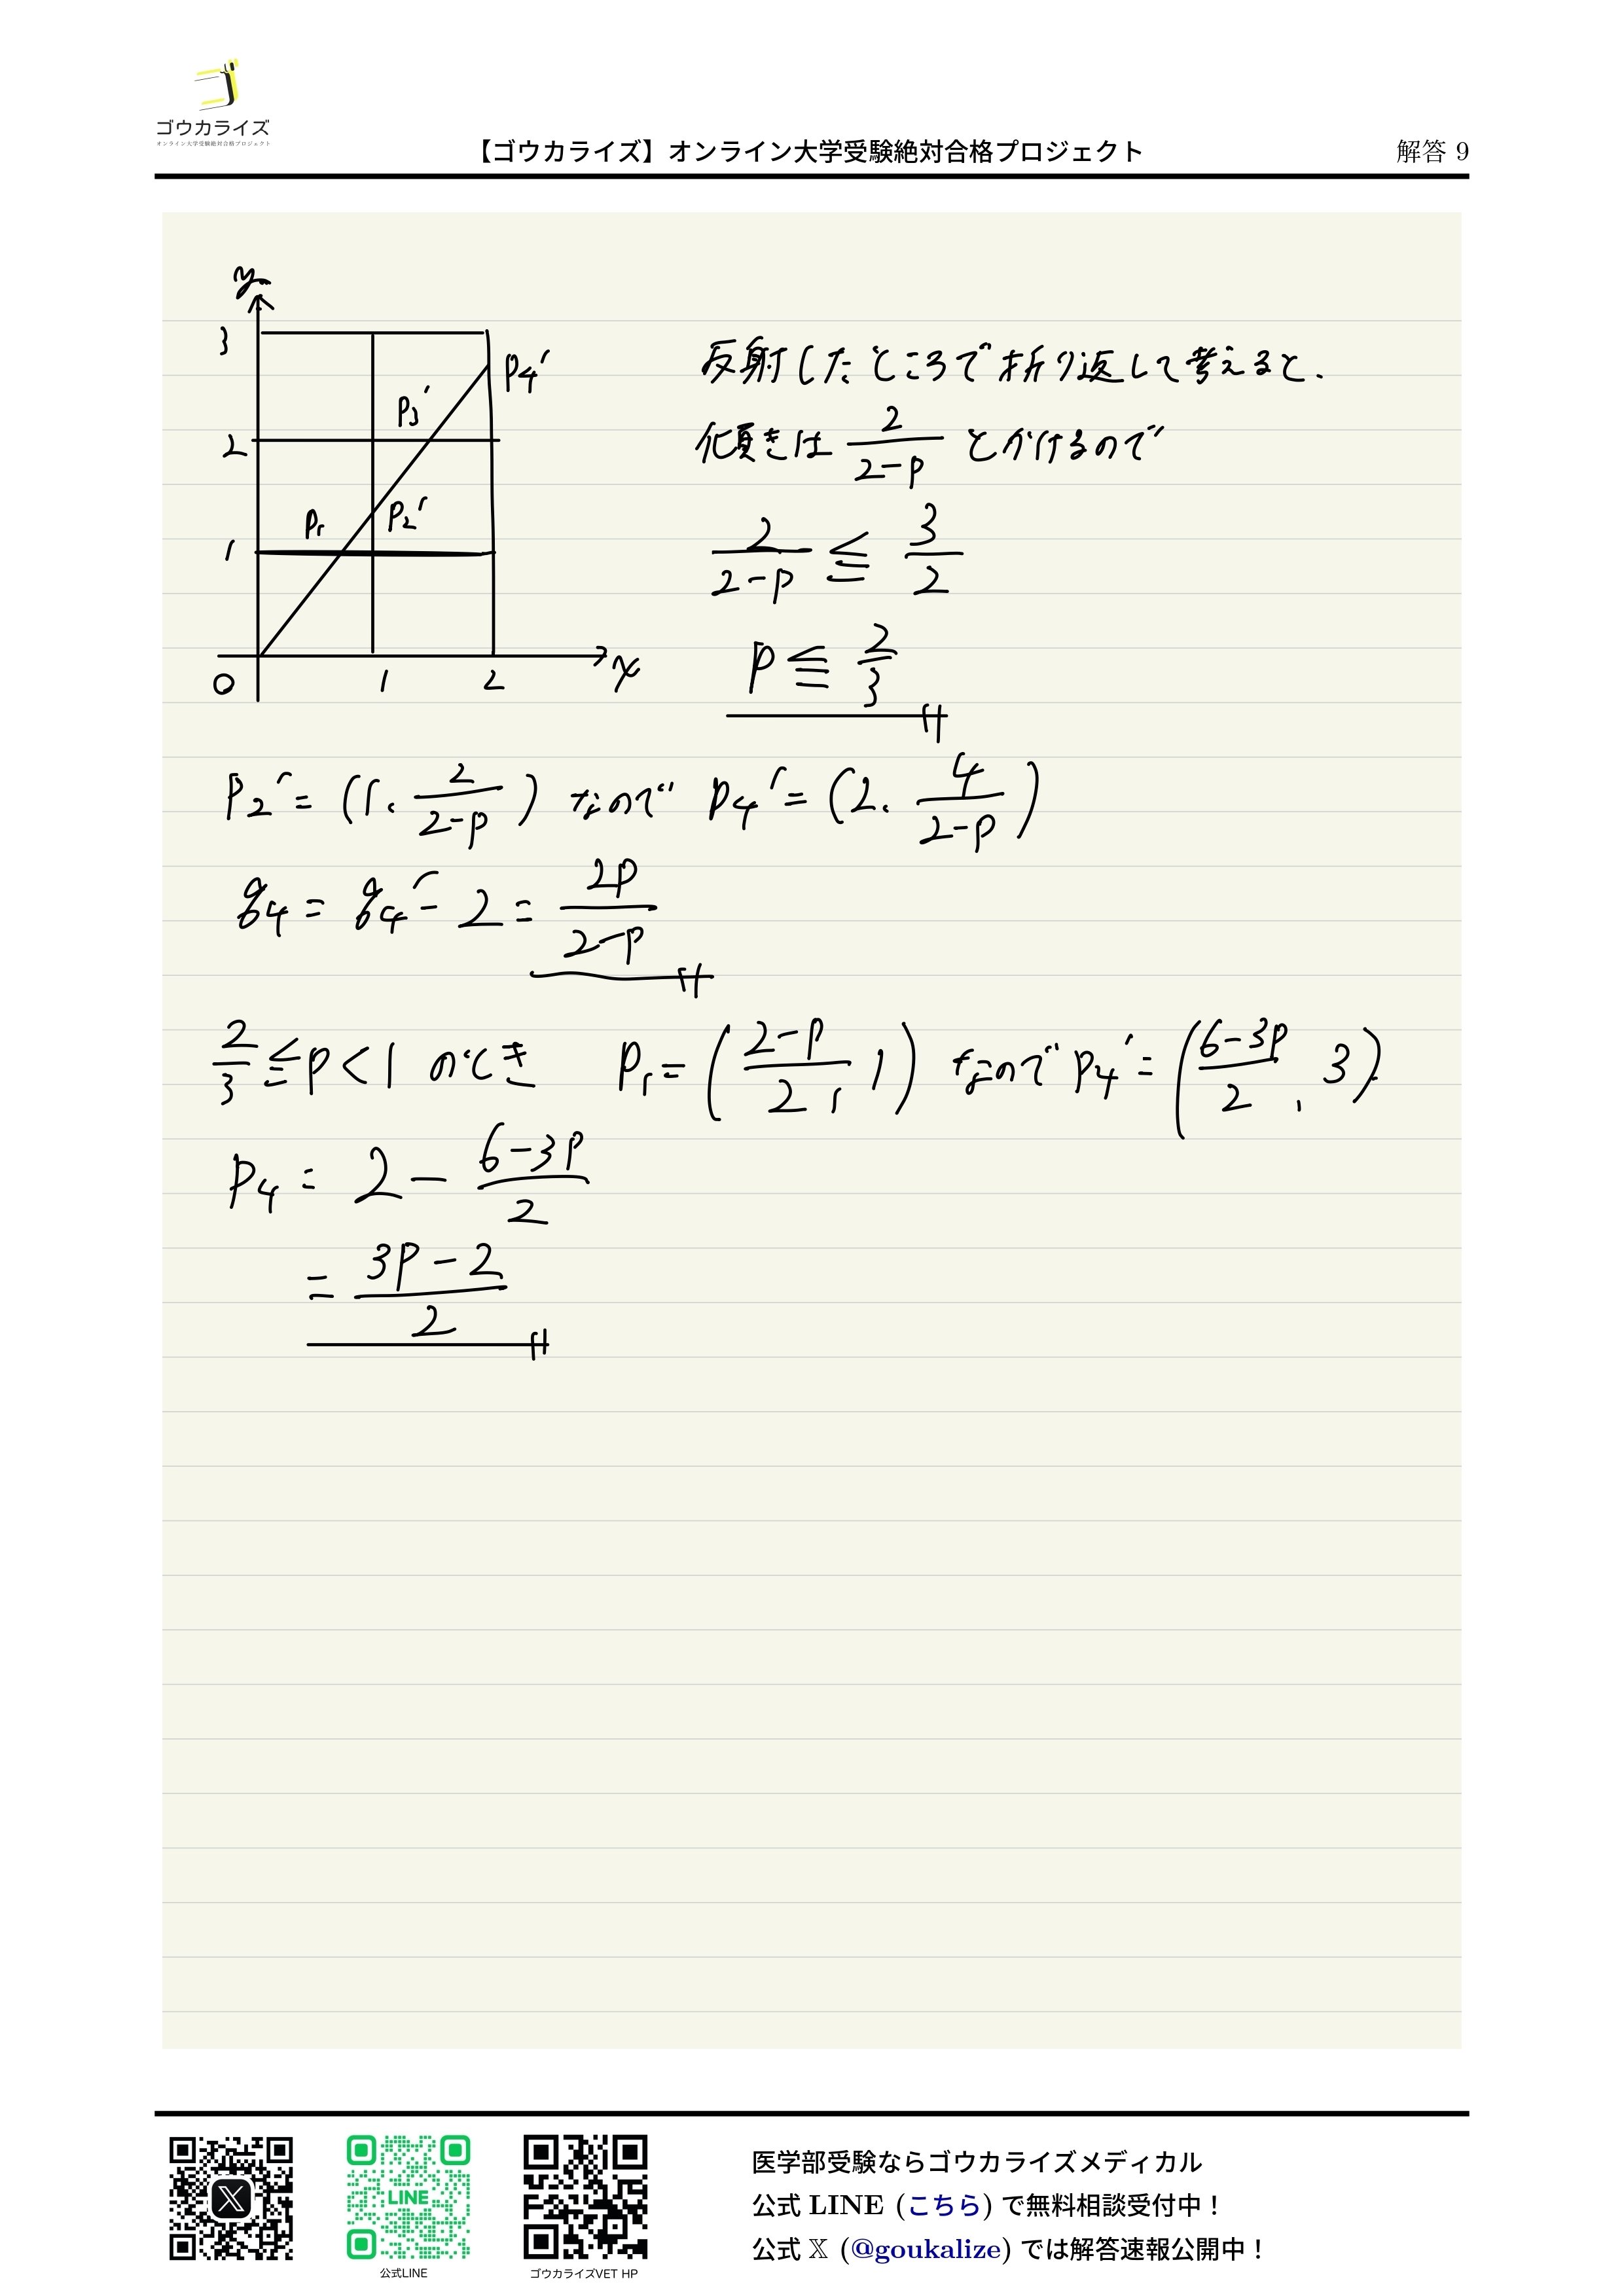 ゴ
ゴウカライズ
オンライン大学受験絶対合格プロジェクト
【ゴウカライズ】オンライン大学受験絶対合格プロジェクト
解答 9
y
3
P4′
P3′
2
P1
P2′
1
0
1
2
x
反射したところで折り返して考えると、
傾きは 2/(2-p) とかけるので
2/(2-p) ≦ 3/2
p ≦ 2/3
P2′ = (1, 2/(2-p)) なので P4′ = (2, 4/(2-p))
q4 = q4′ - 2 = 2p/(2-p)
2/3 ≦ p < 1 のとき P1 = ((2-p)/2, 1) なので P4′ = ((6-3p)/2, 3)
P4 = 2 - (6-3p)/2
= (3p-2)/2
LINE
公式LINE
ゴウカライズVET HP
医学部受験ならゴウカライズメディカル
公式 LINE (こちら) で無料相談受付中！
公式 𝕏 (@goukalize) では解答速報公開中！